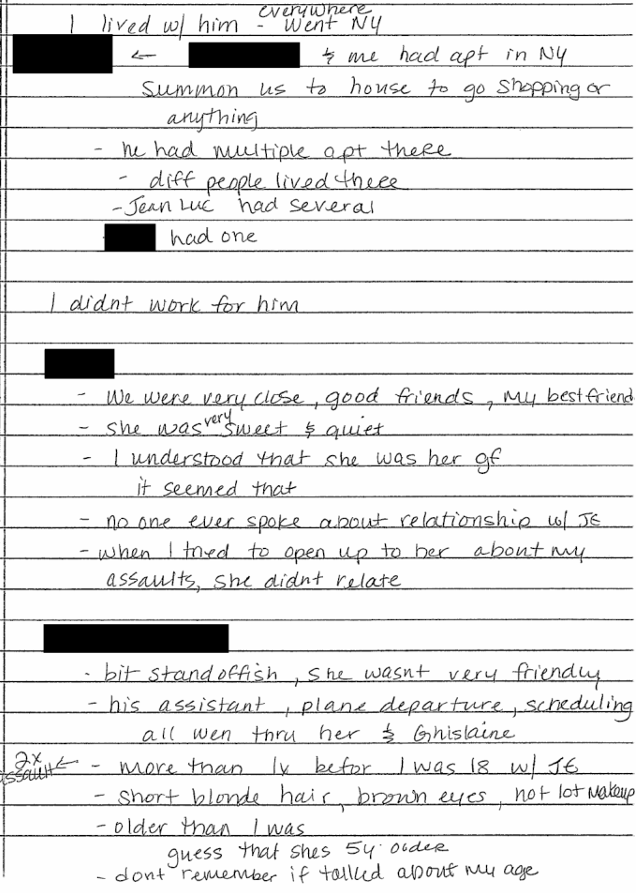 everywhere
I lived w/ him - went NY
← & me had apt in NY
Summon us to house to go shopping or
anything
- he had multiple apt there
- diff people lived there
- Jean Luc had several
had one
I didnt work for him
- We were very close, good friends, my best friend
- she was very sweet & quiet
- I understood that she was her gf
it seemed that
- no one ever spoke about relationship w/ JE
- when I tried to open up to her about my
assaults, she didnt relate
- bit standoffish, she wasnt very friendly
- his assistant, plane departure, scheduling
all wen thru her & Ghislaine
2x
assault ← - more than 1x befor I was 18 w/ JE
- short blonde hair, brown eyes, not lot makeup
- older than I was
guess that shes 5y older
- dont remember if talked about my age